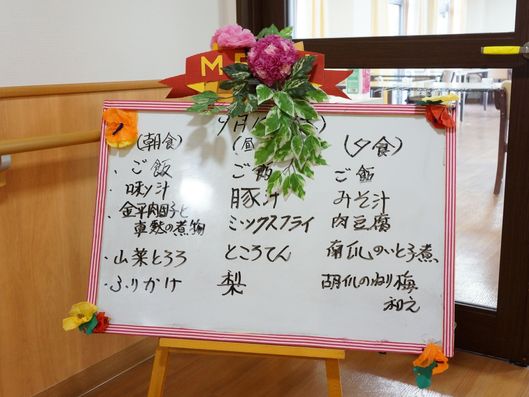 9月1
(朝食)
・ご飯
・味ソ汁
・金平肉団子と
車麩の煮物
・山菜とろろ
・ふりかけ
(昼
ご飯
豚汁
ミックスフライ
ところてん
梨
(夕食)
ご飯
みそ汁
肉豆腐
南瓜のいとこ煮
胡瓜のねり梅
和え